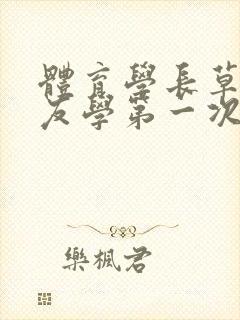 體育學長草
友學第一次
樂楓君